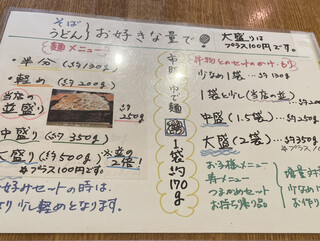 そば
うどん} お好きな量で
大盛りは
プラス100円です。
麺メニュー
・半分 (約130g)
・軽め (約200g)
当店の
並盛り
約250g
中盛り (約350g)
大盛り (約500g)
並の2倍!
☆プラス100円
お好みセットの時は、
より少し軽めとなります。
市販ゆで麺
1袋約170g
丼物とのセットのかけ・もり
少なめ1袋…約130g
1袋と少し(当店の並)
中盛(1.5袋) 約250g
大盛(2袋)…約350g
☆プラス
お子様メニュー
寿メニュー
つまみセット
お持ち帰り品
少なめ
お作り